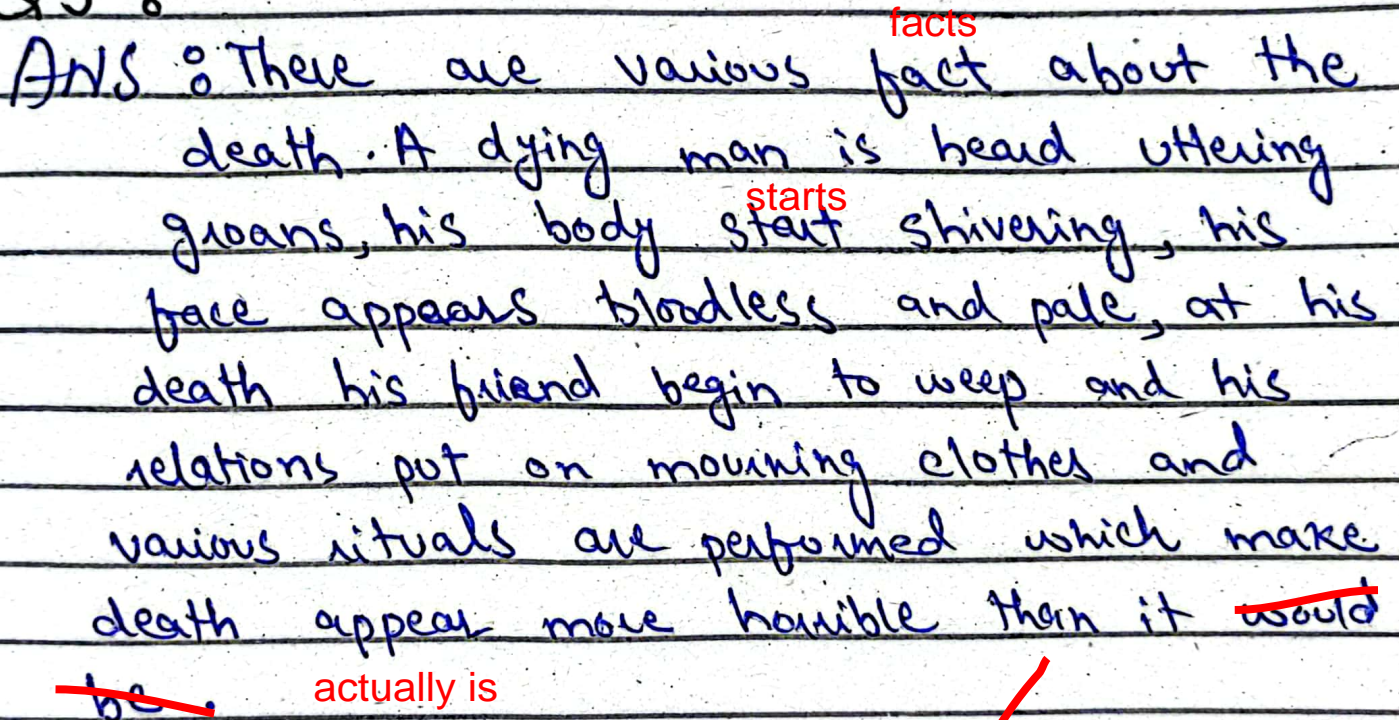 facts
ANS : There are various fact about the
death. A dying man is heard uttering
starts
groans, his body start shivering, his
face appears bloodless and pale, at his
death his friend begin to weep and his
relations put on mourning clothes and
various rituals are performed which make
death appear more horrible than it would
be. actually is